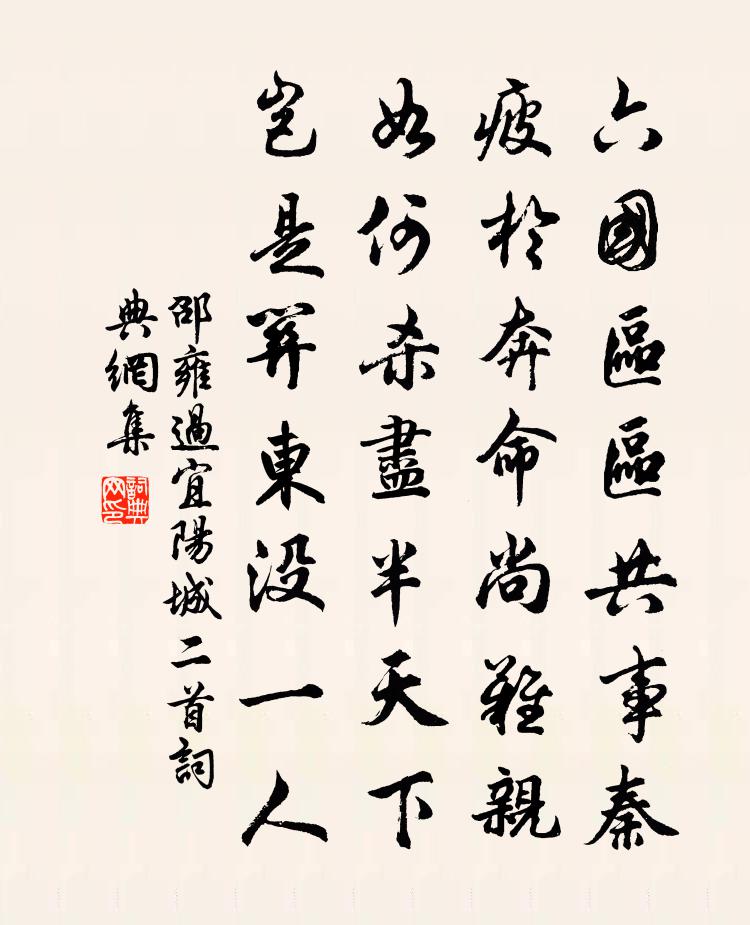 六國區區共事秦
疲於奔命尚難親
如何殺盡半天下
豈是關東沒一人
邵雍過宜陽城二首詞
典網集
詞典
网印